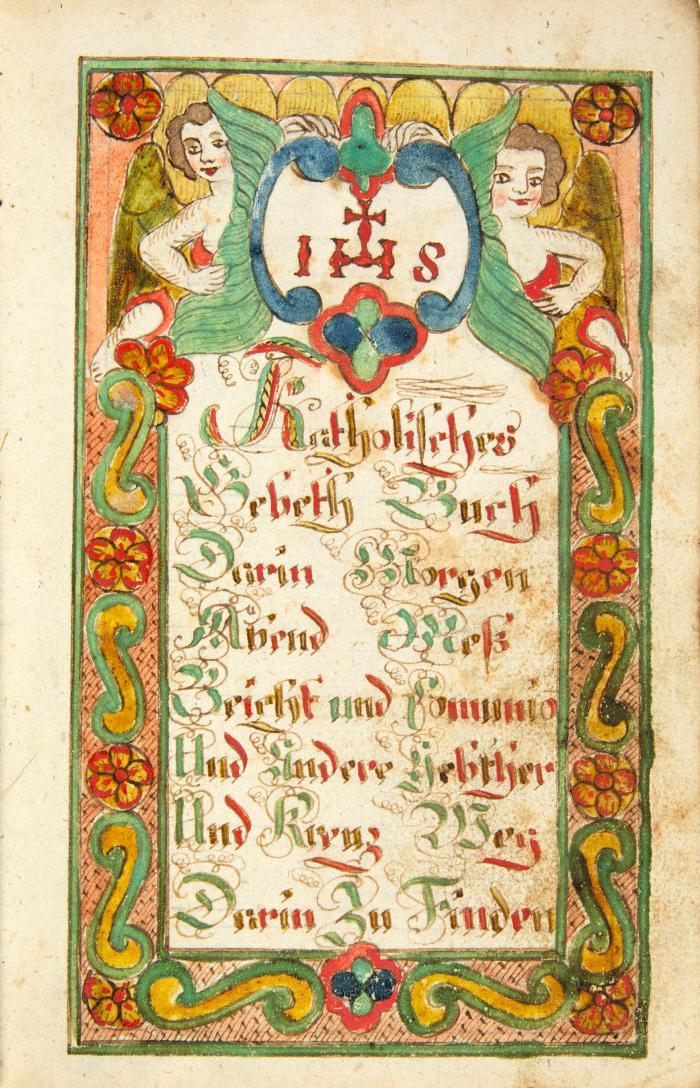 IHS
Katholisches
Gebeth Buch
Darin Morgen
Abend Meß
Beicht und Comunio
Und Andere Gebether
Und Kreuz Weg
Darin Zu Finden